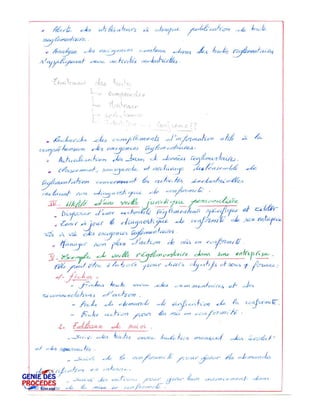 • Alerte des utilisateurs à chaque publication de texte
réglementaire.
• Analyse des exigences contenu dans des textes réglementaires
s'appliquant aux activités industrielles.
Traitement des textes
comprendre
exigence ??
• Recherche des compléments d'information utile à la
compréhension des exigences réglementaires.
• Actualisation des bases de données réglementaires.
• Classement, sauvegarde et archivage de l'ensemble de
réglementation concernant les activités industrielles
un diagnostique de conformité.
III. Utilité d'une veille juridique personnalisée
- Disposer d'une réglementation spécifique et
à jour le diagnostique de conformité de son entreprise
vis à vis des exigences réglementaires.
- Manager son plan d'action de mise en conformité
V. Exemple de veille réglementaire dans une entreprise.
Elle peut être élaborée pour divers objectifs et sous 2 formes:
1. Fiches
- Fiches texte avec des commentaires et des
recommandations d'action.
- Fiche de demande de vérification de la conformité.
- Fiche action pour la mise en conformité.
2. Tableaux de suivi.
- Suivi des textes
et des nouveautés.
- Suivi de la conformité pour gérer les demandes
de vérification en interne.
- Suivi des actions pour gérer leur avancement dans
de la mise en conformité.
GENIE DES
PROCEDES